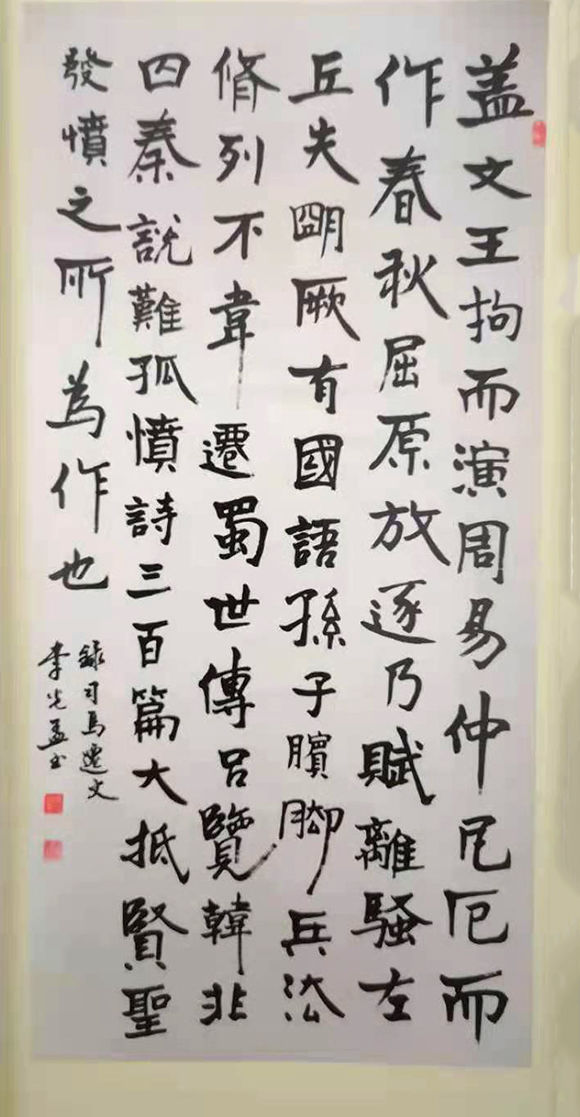 盖文王拘而演周易仲尼厄而
作春秋屈原放逐乃賦離騷左
丘失朙厥有國語孫子臏脚兵法
脩列不韋遷蜀世傳呂覽韓非
囚秦說難孤憤詩三百篇大抵賢聖
發憤之所為作也
録司馬遷文
李光孟书